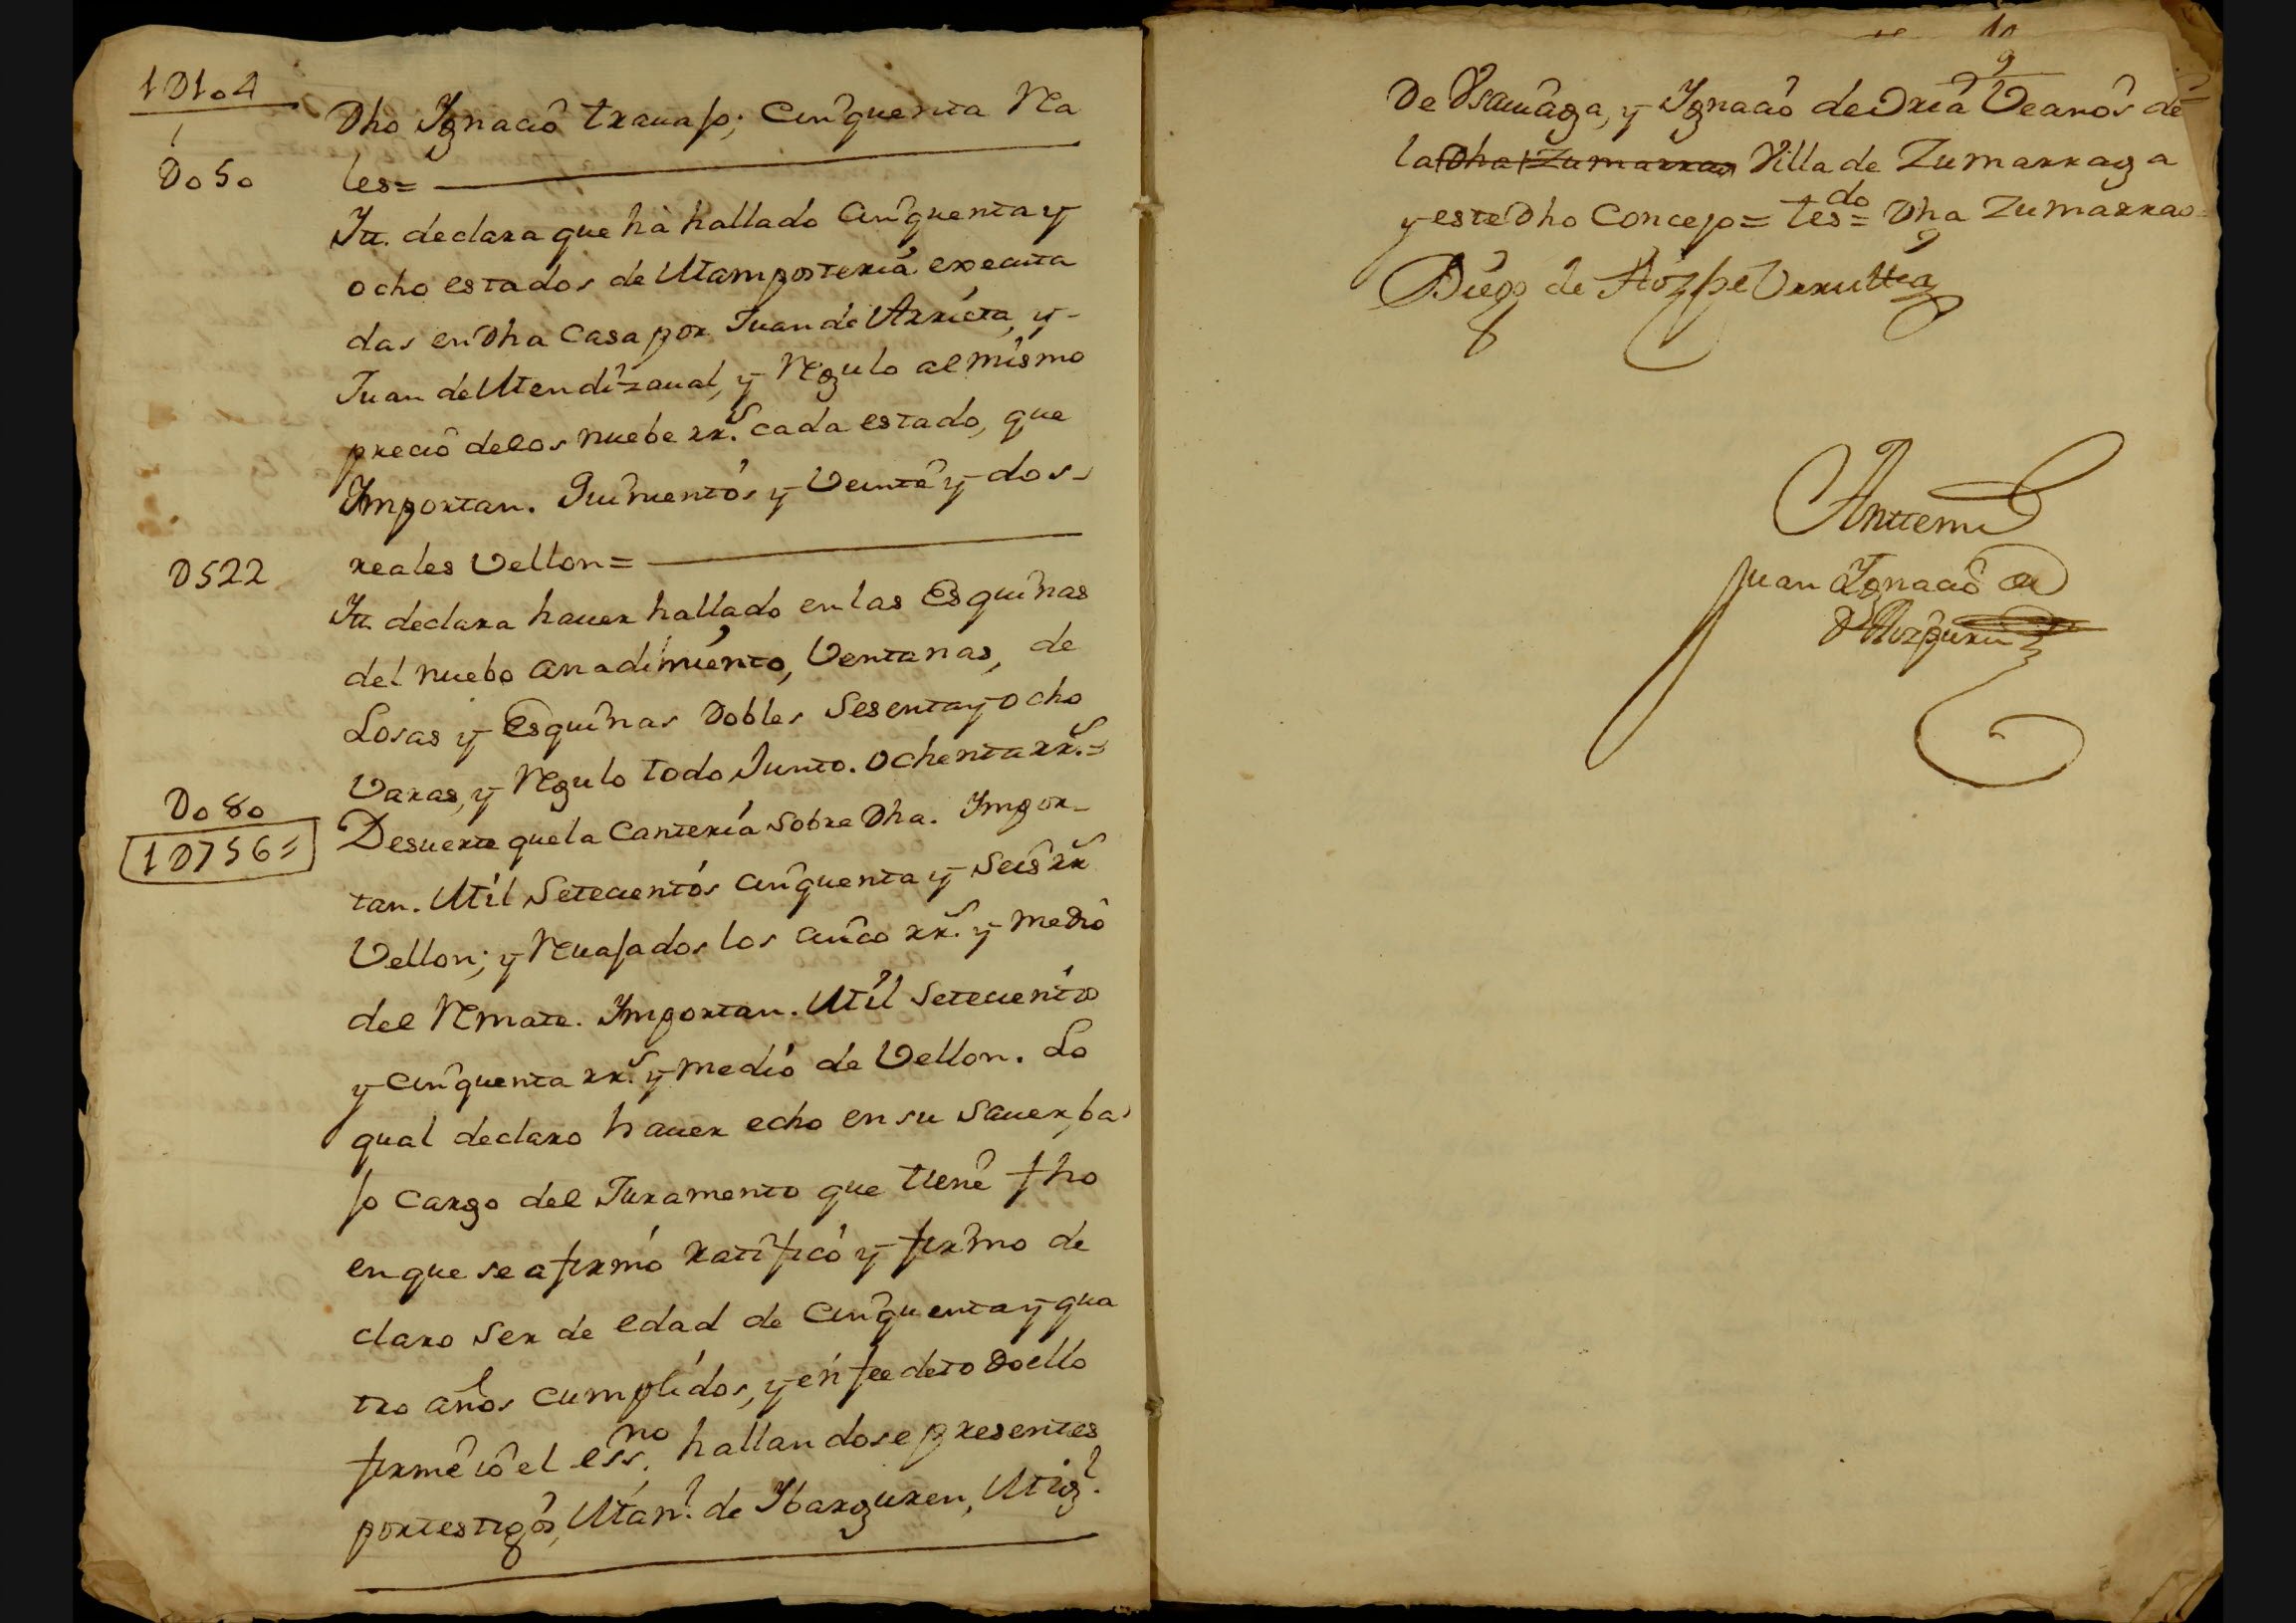 1D1o4
Dho Ygnacio trauajo; Cinquenta Rea
Do5o
les=
Itt. declara que ha hallado Cinquenta y
ocho estados de Mamposteria executa
das en Dha Casa por Juan de Arrieta, y
Juan de Mendizaual, y Regulo al mismo
precio de los nuebe rr.s cada estado, que
Ymportan. Quinientos y Veinte y dos
D522
reales Vellon=
Itt declara hauer hallado en las Esquinas
del nuebo anadimiento, Ventanas, de
Losas y Esquinas Dobles Sesenta y ocho
Varas, y Regulo todo Junto. ochenta rr.s=
Do8o
1D756=
De suerte que la Canteria sobre Dha. Ympor-
tan. Mil Setecientos cinquenta y Seis rr.s
Vellon; y Reuajados los cinco rr.s y medio
del Remate. Ymportan. Mil Setecientos
y cinquenta rr.s y medio de Vellon. Lo
qual declaro hauer echo en su Sauer, ba
jo cargo del Juramento que tiene fho
en que se afirmó ratificó y firmo de
claro ser de edad de Cinquenta y qua
tro años cumplidos, y en fee de todo ello
firme io el ess.no hallandose presentes
por testigos, Man.l de Ybarguren, Mig.l
De Vsauiaga, y Ygnacio de Oria Vecinos de
la Dha Zumarrag Villa de Zumarraga
y este Dho Concejo= tesdo= Dha Zumarrag=
Diego de Urrutia
Antemi
Juan Ygnacio de